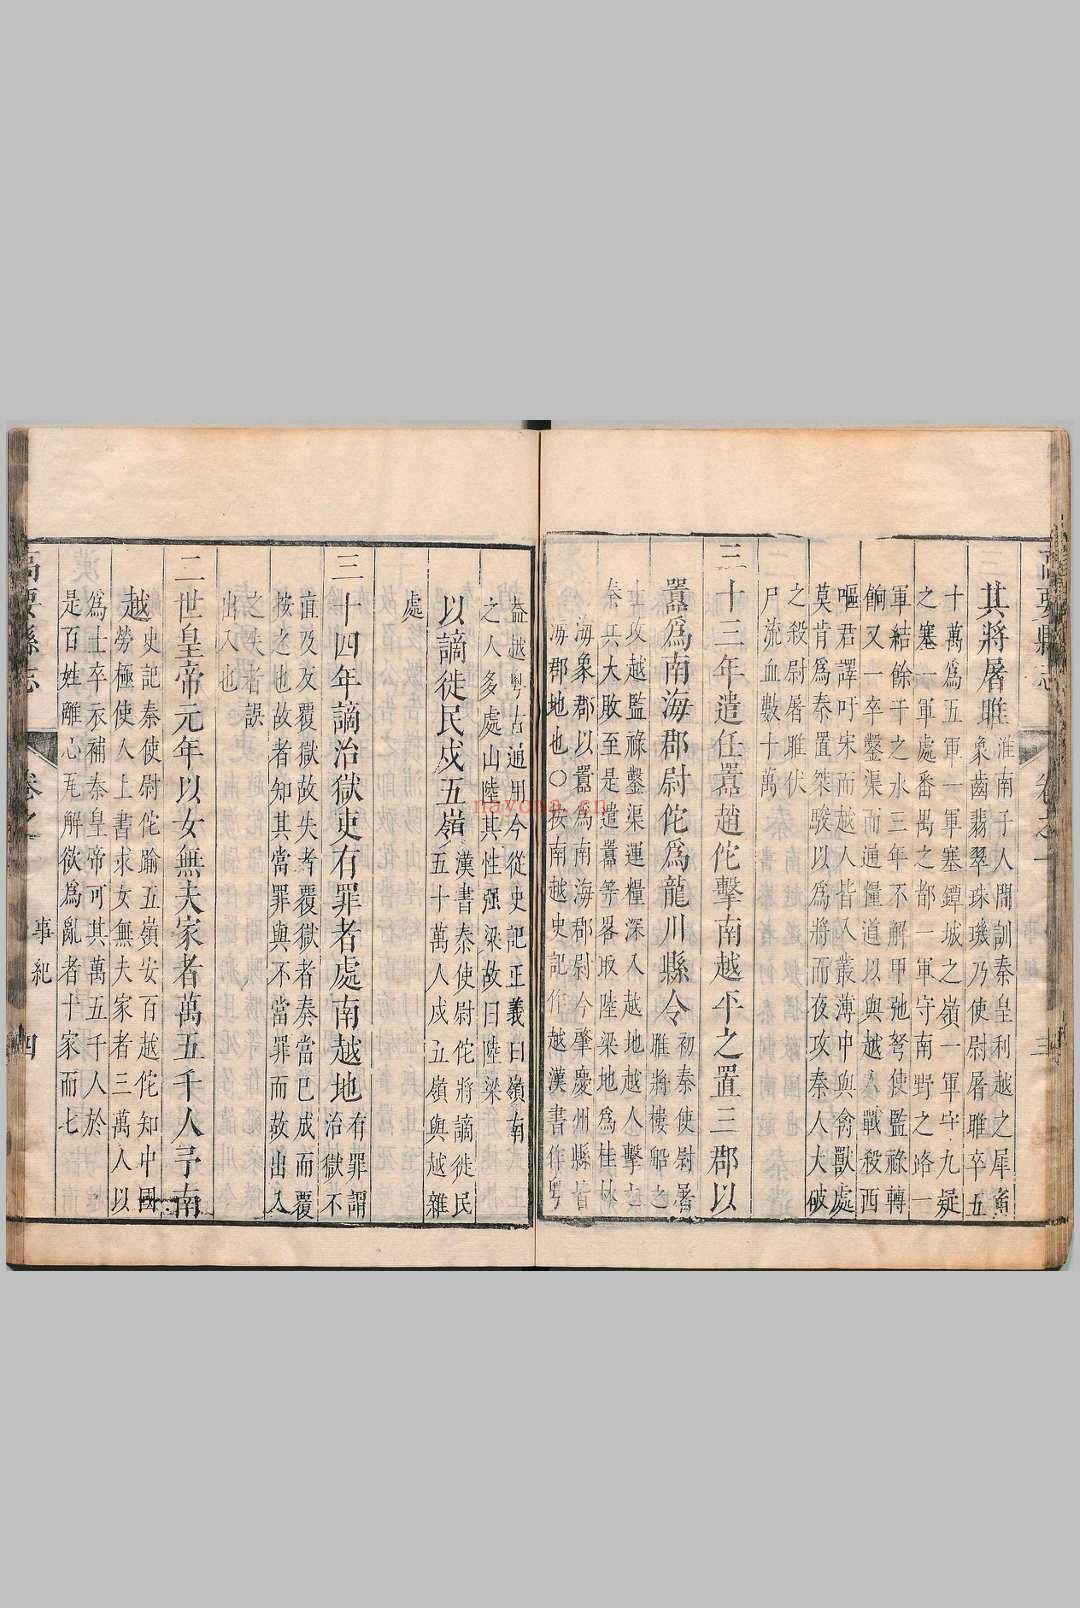 高要縣志
卷之一
三
其將屠睢淮南子人閒訓秦皇利越之犀
象齒翡翠珠璣乃使尉屠睢卒五
十萬爲五軍一軍塞鐔城之嶺一軍守九疑
之塞一軍處番禺之都一軍守南野之路一
軍結餘干之水三年不解甲弛弩使監祿轉
餉又一卒鑿渠而通糧道以與越人戰殺西
嘔君譯吁宋而越人皆入叢薄中與禽獸處
莫肯爲秦置桀駿以爲將而夜攻秦人大破
之殺尉屠睢伏
尸流血數十萬
三十三年遣任囂趙佗擊南越平之置三郡以
囂爲南海郡尉佗爲龍川縣令初秦使尉屠
睢將樓船之
士攻越監祿鑿渠運糧深入越地越人擊之
秦兵大敗至是遣囂等畧取陸梁地爲桂林
海象郡以囂爲南海郡尉今肇慶州縣皆
海郡地也〇按南越史記作越漢書作粤
葢越粤古通用今從史記正義曰嶺南
之人多處山陸其性强梁故曰陸梁
以謫徙民戍五嶺漢書秦使尉佗將謫徙民
五十萬人戍五嶺與越雜
處
三十四年謫治獄吏有罪者處南越地有罪謂
治獄不
直及及覆獄故失者覆獄者奏當已成而覆
按之也故者知其當罪與不當罪而故出入
之失者誤
出入也
二世皇帝元年以女無夫家者萬五千人予南
越史記秦使尉佗踰五嶺安百越佗知中國
勞極使人上書求女無夫家者三萬人以
爲士卒衣補秦皇帝可其萬五千人於
是百姓離心瓦解欲爲亂者十家而七
高要縣志
卷之一
事紀
四
nayona.cn